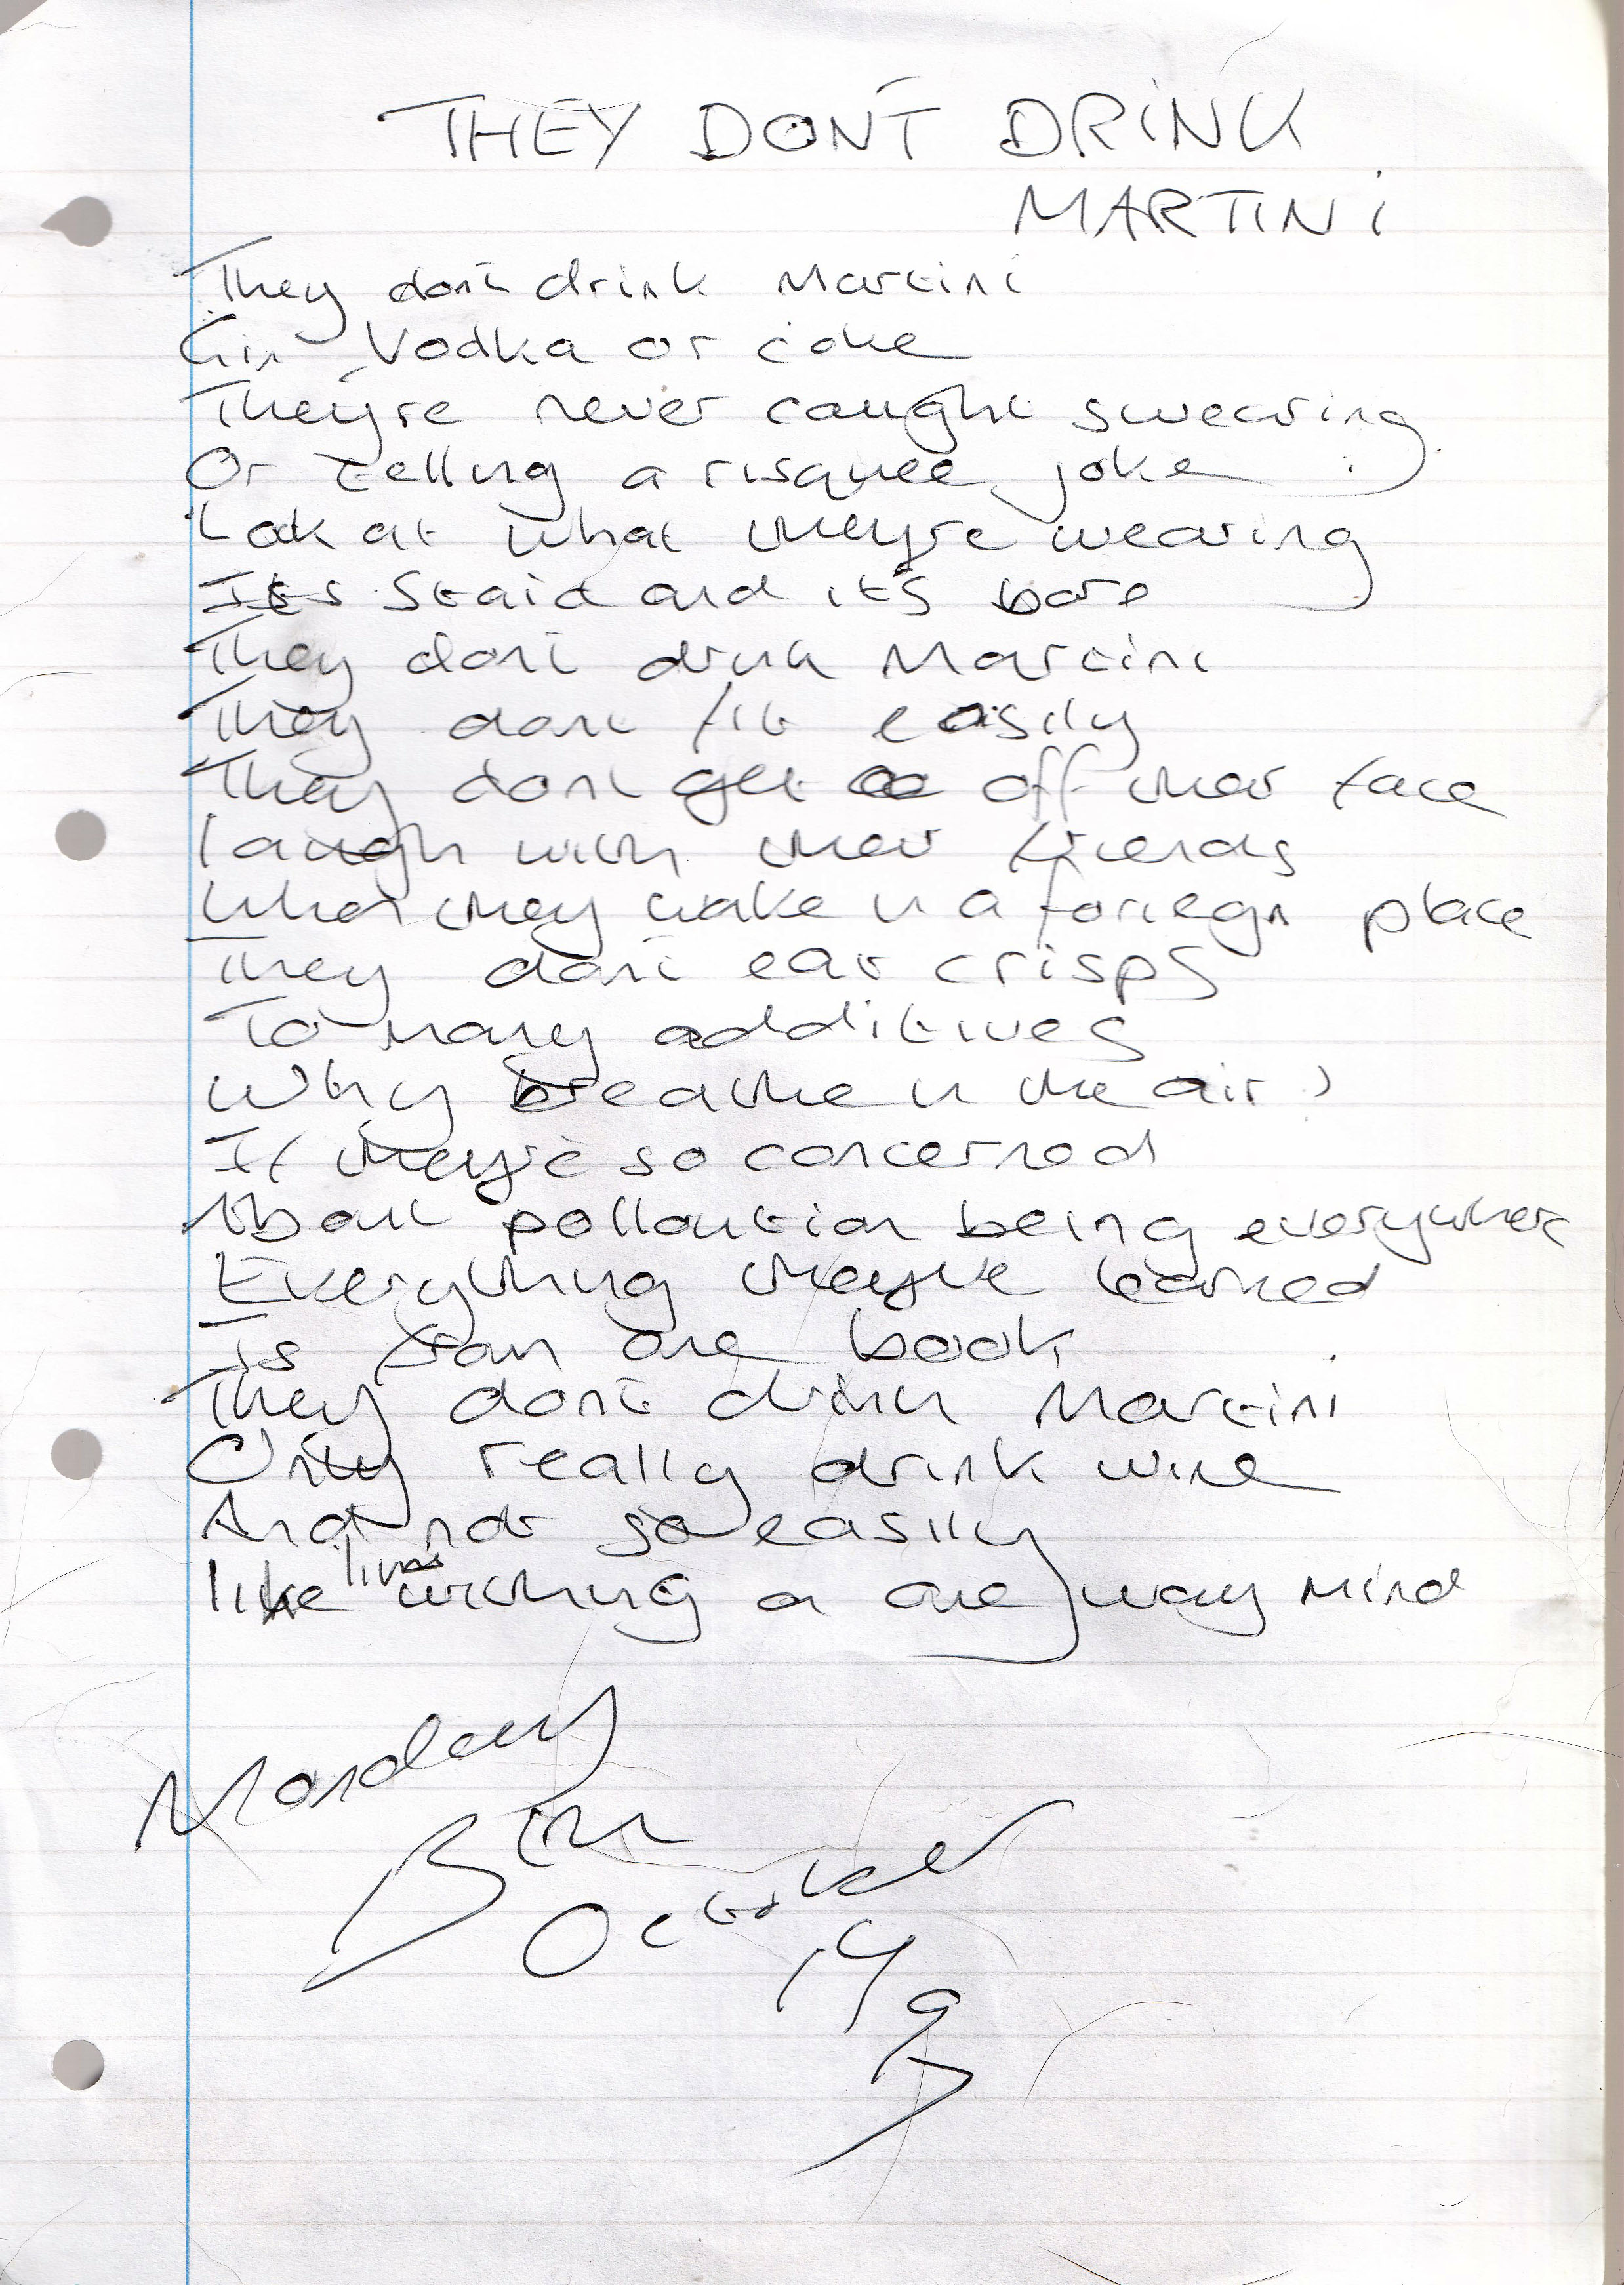 THEY DON'T DRINK
MARTINI
They don't drink Martini
Gin Vodka or coke
They're never caught swearing
Or telling a risquee joke
Look at what they're wearing
It's staid and it's bore
They don't drink Martini
They dont fit easily
They dont get off their face
laugh with their friends
When they wake in a foriegn place
They don't eat crisps
To many additives
Why breathe in the air?
If they're so concerned
About polloution being everywhere
Everything they've learned
Is from one book
They don't drink Martini
Only really drink wine
And not so easily
like living a one way mind
Monday
5th
October
19